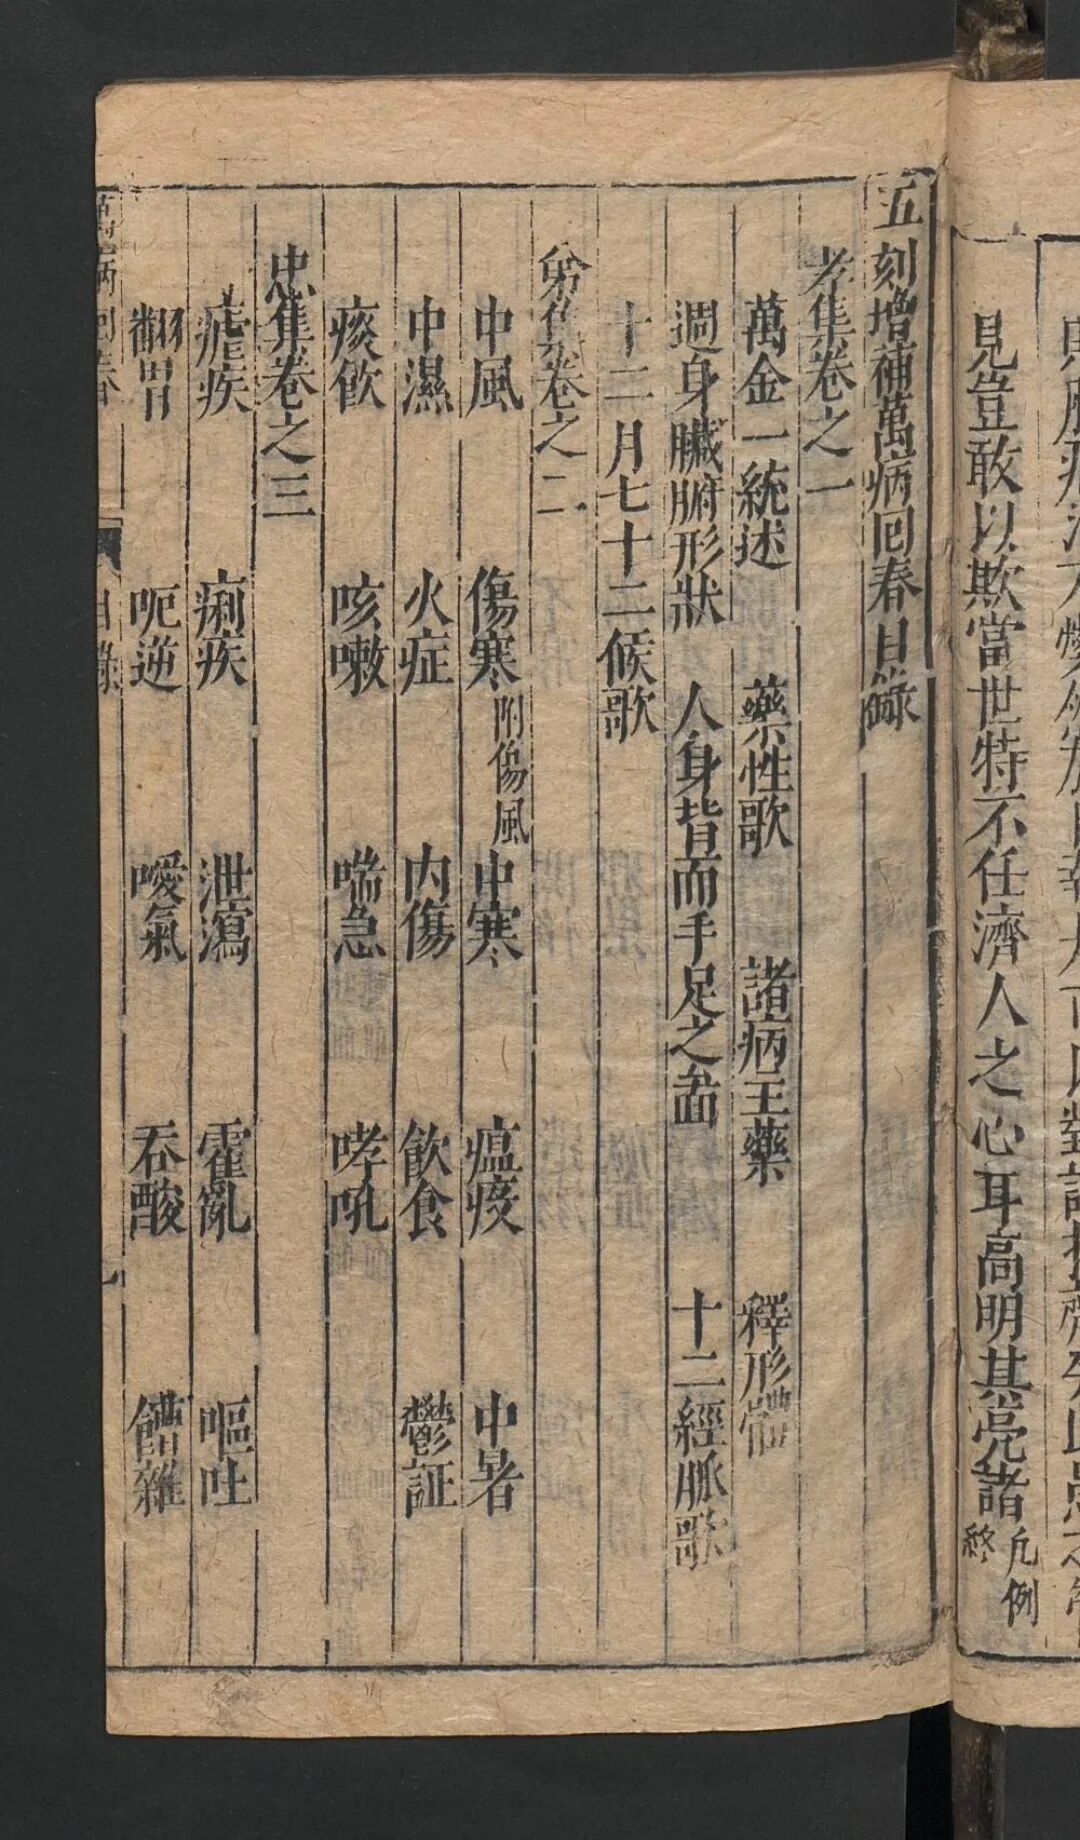 見豈敢以欺當世特不任濟人之心耳高明其亮諸 凡例終
五刻增補萬病回春目錄
孝集卷之一
萬金一統述 藥性歌 諸病主藥 釋形體
週身臟腑形狀 人身背而手足之啚 十二經脈歌
十二月七十二候歌
弟集卷之二
中風 傷寒附傷風 中寒 瘟疫 中暑
中濕 火症 内傷 飲食 鬱証
痰飲 咳嗽 喘急 哮吼
忠集卷之三
瘧疾 痢疾 泄瀉 霍亂 嘔吐
翻胃 呃逆 噯氣 吞酸 嘈雜
萬病回春 目錄